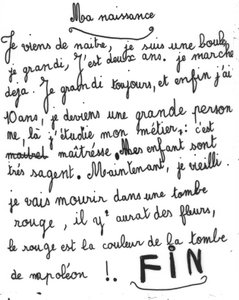 Ma naissance
Je viens de naitre, je suis une boule
je grandi, J'est deux ans. je marche
deja. Je grandi toujours, et enfin j'ai
10 ans, je deviens une grande person
ne, là j'étudie mon métier, : c'est
maîtrésse. Mes enfant sont
trés sagent. Maintenant, je vieilli
je vais mourir dans une tombe
rouge, il y' aurat des fleurs,
le rouge est la couleur de la tombe
de napoléon !. FIN